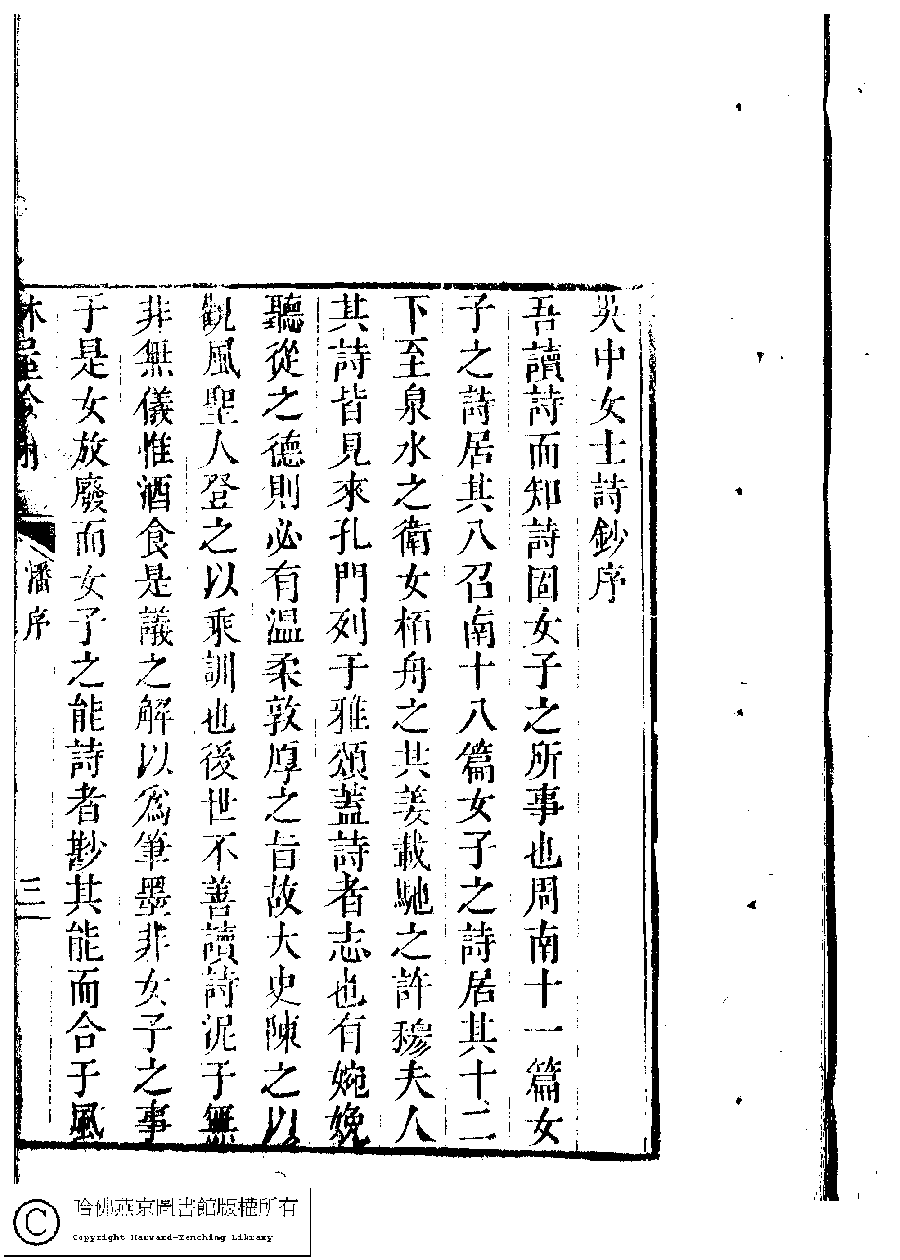 吳中女士詩鈔序
吾讀詩而知詩固女子之所事也周南十一篇女
子之詩居其八召南十八篇女子之詩居其十二
下至泉水之衛女栢舟之共姜載馳之許穆夫人
其詩皆見來孔門列于雅頌蓋詩者志也有婉娩
聽從之德則必有溫柔敦厚之旨故大史陳之以
觀風聖人登之以乘訓也後世不善讀詩泥于無
非無儀惟酒食是議之解以為筆墨非女子之事
于是女放廢而女子之能詩者尠其能而合于風
林屋吟榭
潘序
三
哈佛燕京圖書館版權所有
Copyright Harvard-Yenching Library